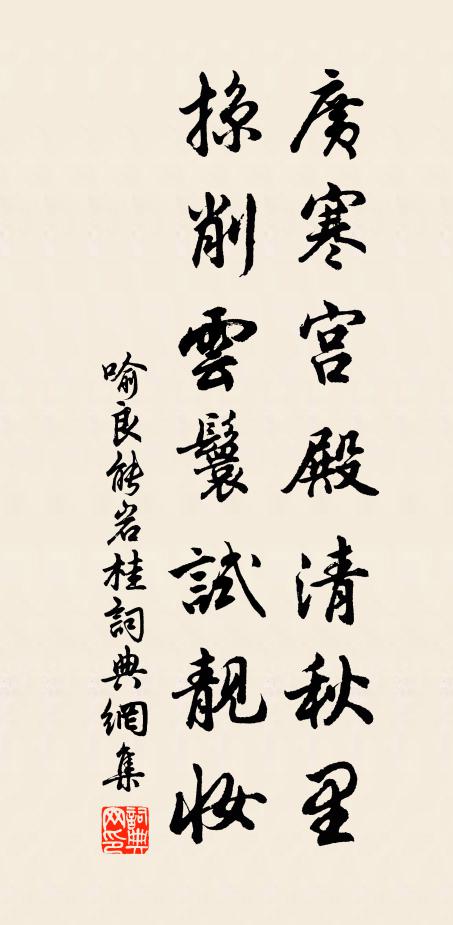 廣寒宮殿清秋里
掠削雲鬟試靚妝
喻良能岩桂詞典網集
詞典網印